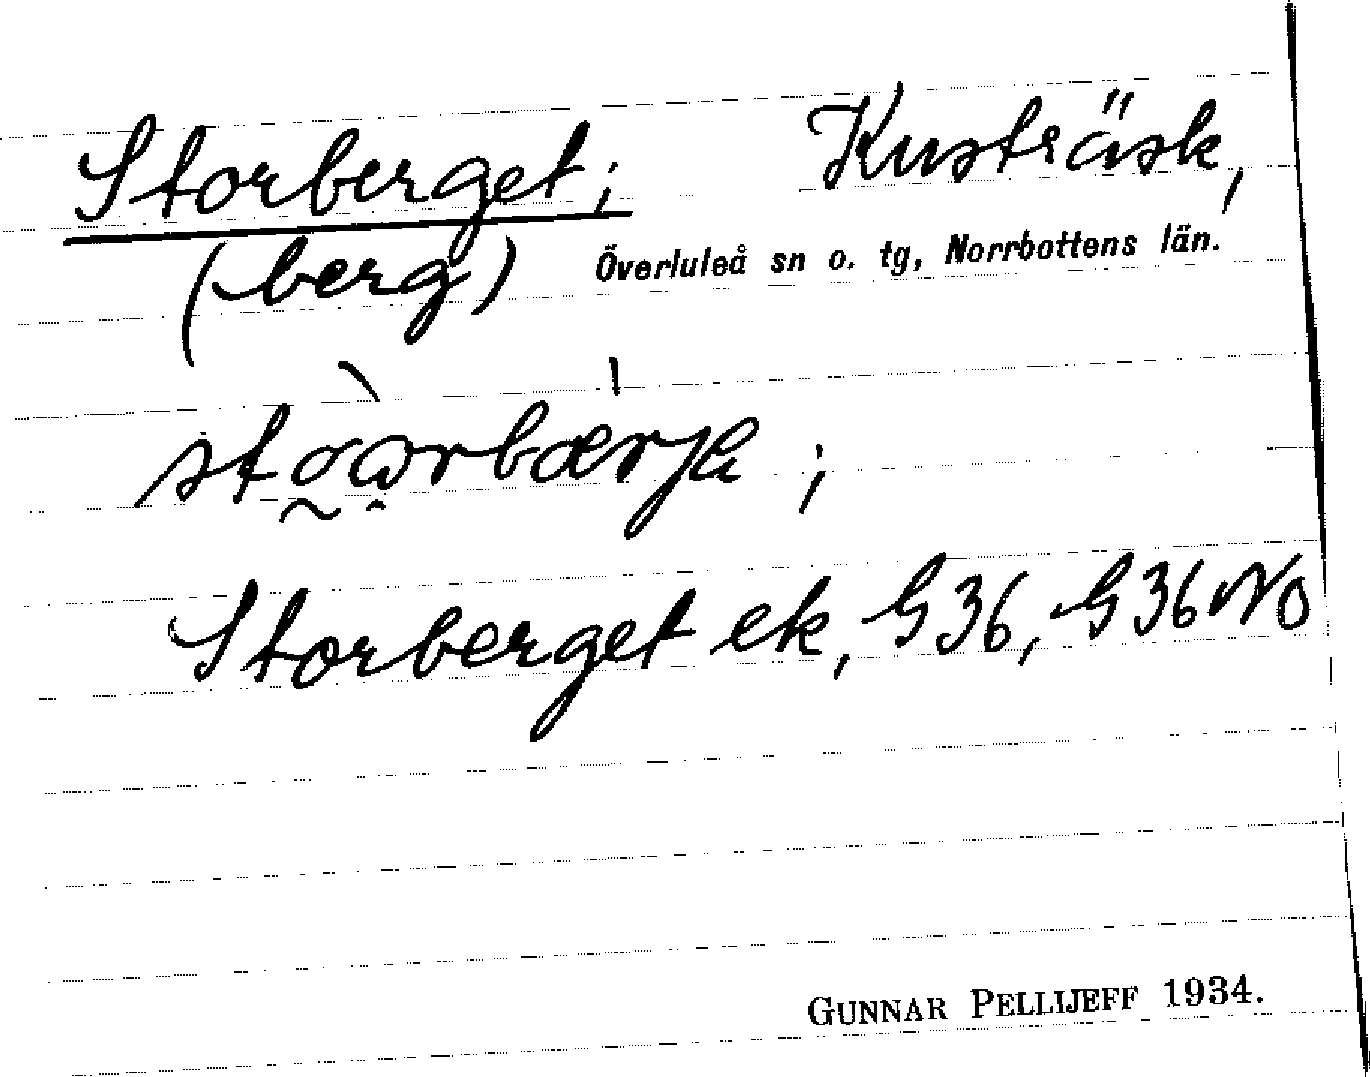 Storberget; Kusträsk,
(berg) Överluleå sn o. tg, Norrbottens län.
;
Storberget ek, G36, G36 NO
GUNNAR PELLIJEFF 1934.